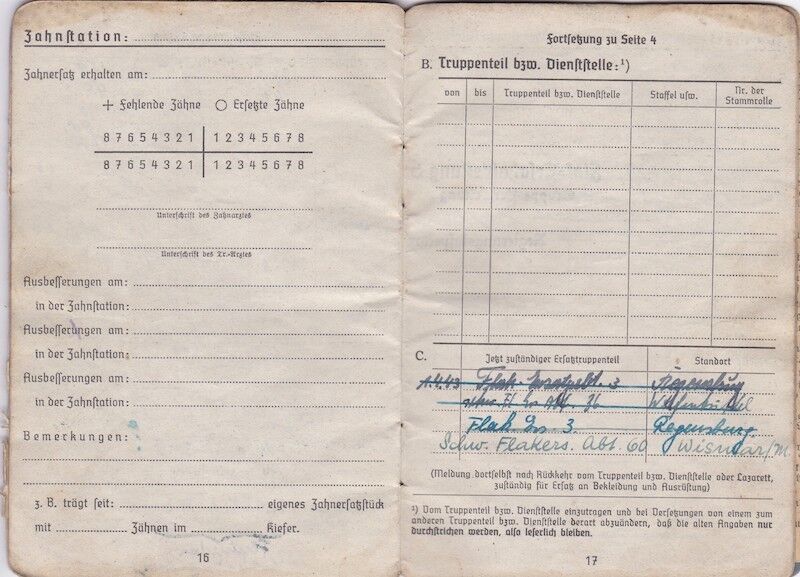 Zahnstation:
Zahnersatz erhalten am:
+ Fehlende Zähne ○ Ersetzte Zähne
8 7 6 5 4 3 2 1 | 1 2 3 4 5 6 7 8
8 7 6 5 4 3 2 1 | 1 2 3 4 5 6 7 8
Unterschrift des Zahnarztes
Unterschrift des Tr.-Arztes
Ausbesserungen am:
in der Zahnstation:
Ausbesserungen am:
in der Zahnstation:
Ausbesserungen am:
in der Zahnstation:
Bemerkungen:
z. B. trägt seit: eigenes Zahnersatzstück
mit Zähnen im Kiefer.
16
Fortsetzung zu Seite 4
B. Truppenteil bzw. Dienststelle:¹)
von bis Truppenteil bzw. Dienststelle Staffel usw. Nr. der Stammrolle
C. Jetzt zuständiger Ersatztruppenteil Standort
1.4.43 Flak 3 Regensburg
36
Flak 3. Regensburg.
Schw. Flakers. Abt. 60 Wismar/M.
(Meldung dortselbst nach Rückkehr vom Truppenteil bzw. Dienststelle oder Lazarett,
zuständig für Ersatz an Bekleidung und Ausrüstung)
¹) Vom Truppenteil bzw. Dienststelle einzutragen und bei Versetzungen von einem zum
anderen Truppenteil bzw. Dienststelle derart abzuändern, daß die alten Angaben nur
durchstrichen werden, also leserlich bleiben.
17